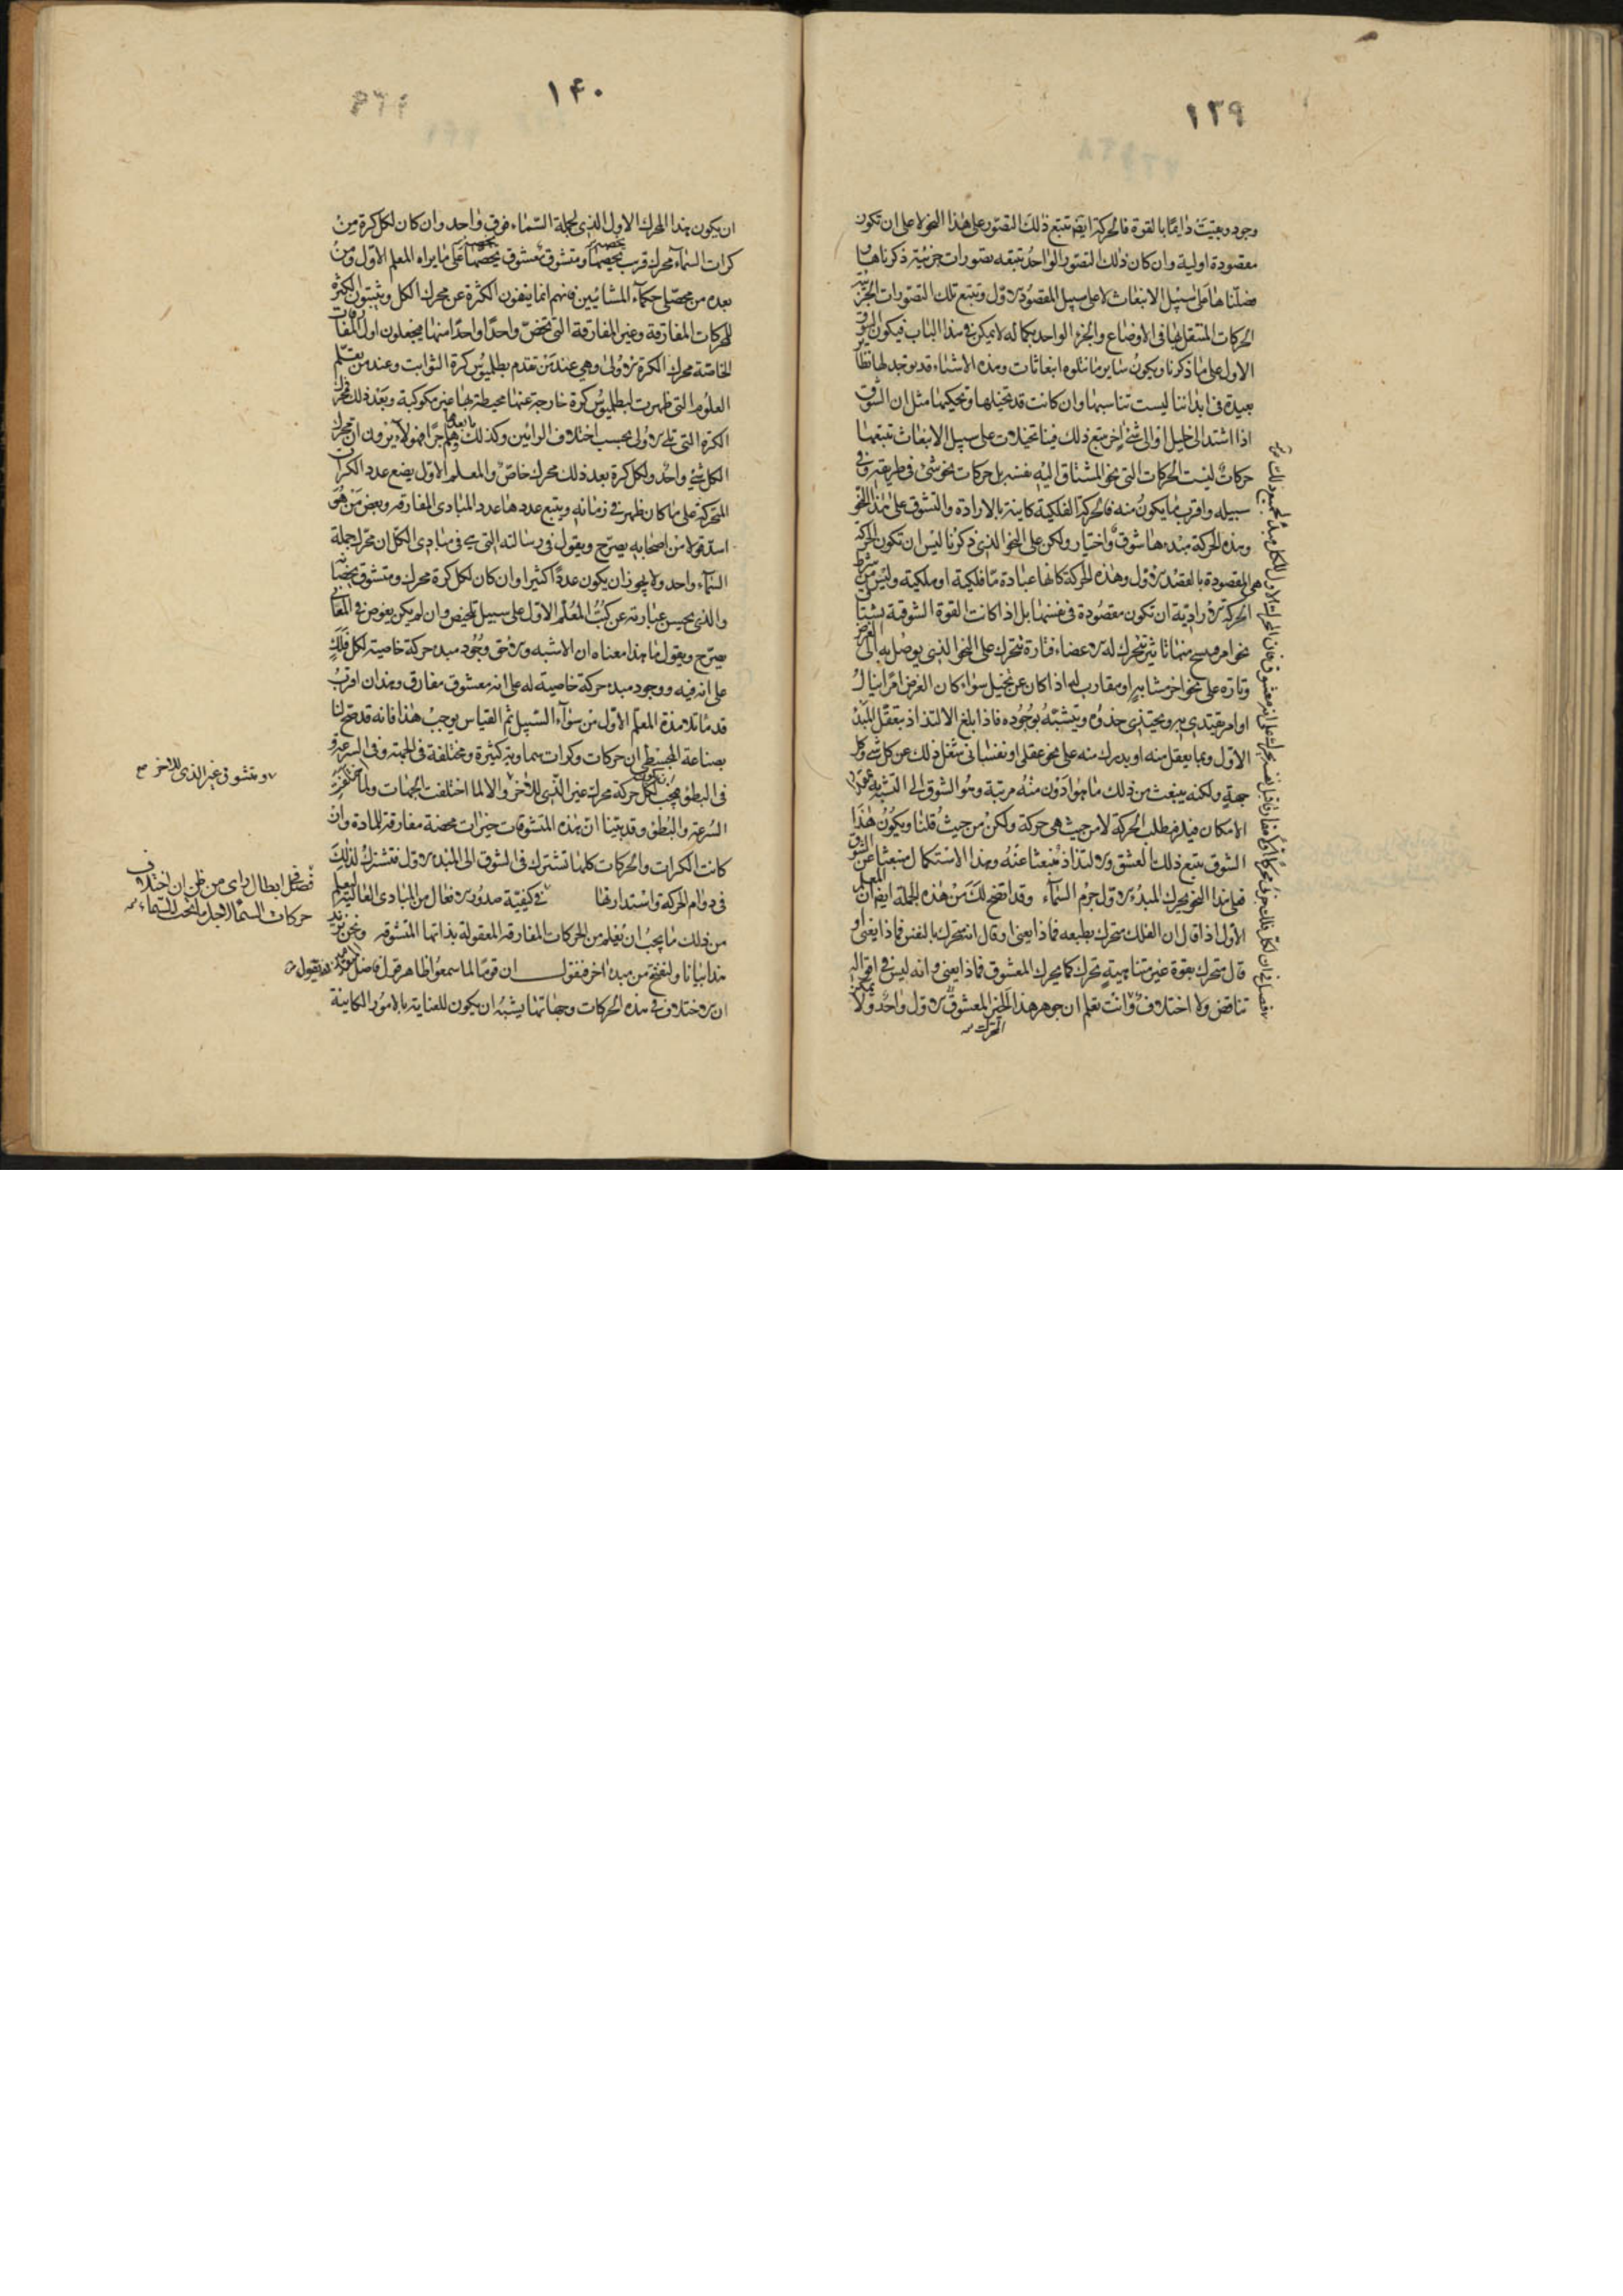 ١٣٩
وجود وبقيت دايما بالقوة فالحركة ايضا تتبع ذلك التصور على هذا النحو لا على ان تكون
مقصودة اولية وان كان ذلك التصور الواحد يتبعه تصورات جزئية ذكرناها و
فصلناها على سبيل الانبعاث لا على سبيل المقصود الاول وتتبع تلك التصورات الجزئية
الحركات المنتقل بها فى الاوضاع والجزء الواحد بكماله لا يمكن فى هذا الباب فيكون الشوق
الاول على ما ذكرنا ويكون ساير ما نتلوه انبعاثات وهذه الاشياء قد يوجد لها نظاير
بعيدة فى ابداننا ليست تناسبها وان كانت قد تخيلها وتحكيها مثل ان الشوق
اذا اشتد الى خليل او الى شئ اخر تبع ذلك فينا تخيلات على سبيل الانبعاث تتبعها
حركات ليست الحركات التى نحو المشتاق اليه نفسه بل حركات نحو شئ فى طريقه وفى
سبيله واقرب ما يكون منه فالحركة الفلكية كاينة بالارادة والتشوق على هذا النحو
وهذه الحركة مبدءها شوق واختيار ولكن على النحو الذى ذكرنا ليس ان تكون الحركة
هى المقصودة بالقصد الاول وهذه الحركة كانها عبادة ما فلكية او ملكية وليس من شرط
الحركة الارادية ان تكون مقصودة فى نفسها بل اذا كانت القوة الشوقية يشتاق
نحو امر يسنح منها تاثير تتحرك له الاعضاء فتارة تتحرك على النحو الذى يوصل به الى الغرض
وتارة على نحو اخر مشابه او مقارب له اذا كان عن تخيل سواء كان الغرض امرا ينال
او امر يقتدى به ويحتذى حذوه ويتشبه بوجوده فاذا بلغ الالتذاذ بتعقل المبدء
الاول وبما يعقل منه او يدرك منه على نحو عقلى او نفسانى شغل ذلك عن كل شئ وكل
جهة ولكنه ينبعث من ذلك ما هو ادون منه مرتبة وهو الشوق الى التشبه به بمقدار
الامكان فيلزم طلب الحركة لا من حيث هى حركة ولكن من حيث قلنا ويكون هذا
الشوق يتبع ذلك العشق والالتذاذ منبعثا عنه وهذا الاستكمال منبعثا عن الشوق
فعلى هذا النحو يحرك المبدء الاول جرم السماء وقد اتضح لك من هذه الجملة ايضا ان المعلم
الاول اذا قال ان الفلك متحرك بطبعه فماذا يعنى او قال انه متحرك بالنفس فماذا يعنى او
قال متحرك بقوة غير متناهية تحرك كما يحرك المعشوق فماذا يعنى وانه ليس فى اقواله
تناقض ولا اختلاف وانت تعلم ان جوهر هذا الخير المعشوق الاول واحد ولا يمكن
المحرك
١٤٠
ان يكون هذا المحرك الاول الذى لجملة السماء فوق واحد وان كان لكل كرة من
كرات السماء محرك قريب يخصها ومتشوق معشوق يخصها على ما يراه المعلم الاول ومن
بعده من محصلى حكماء المشائيين فانهم انما ينفون الكثرة عن محرك الكل ويثبتون الكثرة
للمحركات المفارقة وغير المفارقة التى تخص واحدا واحدا منها فيجعلون اول المفارقات
الخاصة محرك الكرة الاولى وهى عند من تقدم بطلميوس كرة الثوابت وعند من تعلم
العلوم التى ظهرت لبطلميوس كرة خارجة عنها محيطة بها غير مكوكبة وبعد ذلك محرك
الكرة التى تلى الاولى بحسب اختلاف الرائين وكذلك ما بعدها وهلم جرا فهولاء يرون ان محرك
الكل شئ واحد ولكل كرة بعد ذلك محرك خاص والمعلم الاول يضع عدد الكرات
المتحركة على ما كان ظهر فى زمانه ويتبع عددها عدد المبادى المفارقة وبعض من هو
اسد قولا من اصحابه يصرح ويقول فى رسالته التى فى مبادى الكل ان محرك جملة
السماء واحد ولا يجوز ان يكون عددا كثيرا وان كان لكل كرة محرك ومتشوق يخصانها
والذى يحسن عبارته عن كتب المعلم الاول على سبيل تلخيص وان لم يكن يغوص فى المعانى
يصرح ويقول ما هذا معناه ان الاشبه والاحق وجود مبدء حركة خاصية لكل فلك
على انه فيه ووجود مبدء حركة خاصية له على انه معشوق مفارق وهذان اقرب
قدماء تلامذة المعلم الاول من سواء السبيل ثم القياس يوجب هذا فانه قد صح لنا
بصناعة المجسطى ان حركات وكرات سماوية كثيرة ومختلفة فى الجهة وفى السرعة و
فى البطؤ فيجب لكل حركة محرك غير الذى للاخر والا لما اختلفت الجهات ولما اختلفت
السرعة والبطؤ وقد بينا ان هذه المتشوقات خيرات محضة مفارقة للمادة وان
كانت الكرات والحركات كلها تشترك فى الشوق الى المبدء الاول فتشترك لذلك
فى دوام الحركة واستدارتها فى كيفية صدور الافعال من المبادى العالية ليعلم
من ذلك ما يجب ان يعلم من المحركات المفارقة المعقولة بذاتها المتشوقة ونحن نزيد
هذا بيانا ولنفتتح من مبدء اخر فنقول ان قوما لما سمعوا ظاهر قول فاضل المتقدمين اذ يقول
ان الاختلاف فى هذه الحركات وجهاتها يشبه ان يكون للعناية بالامور الكاينة
ومتشوق غير الذى للاخر صح
فصل فى ابطال راى من ظن ان اختلاف
حركات السماء لاجل ما تحت السماء